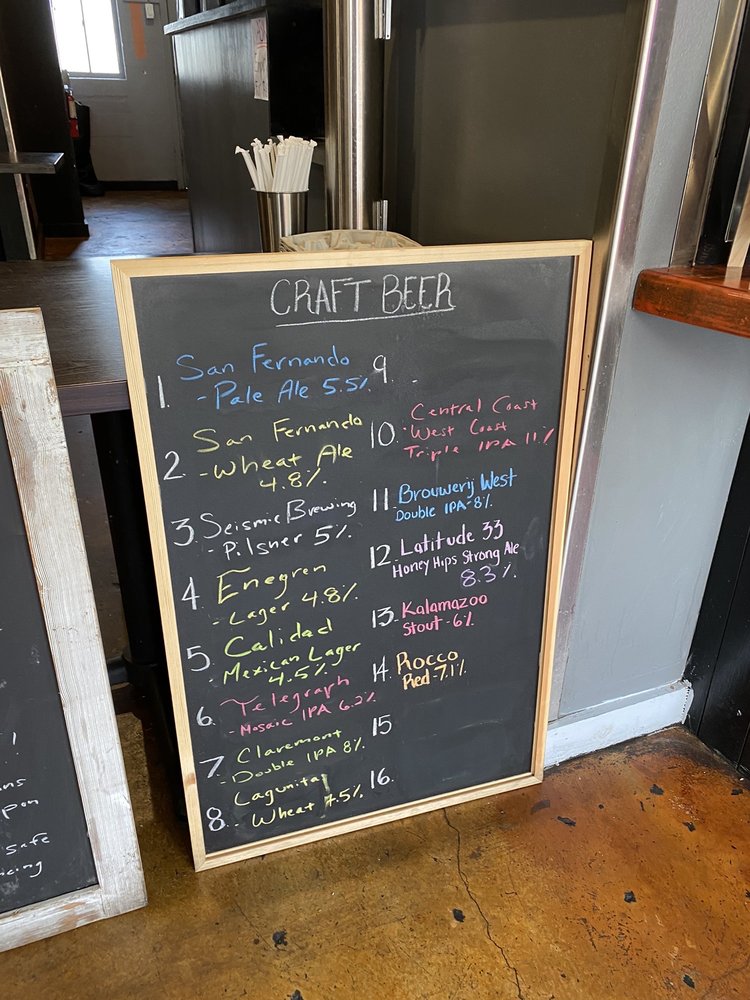 CRAFT BEER
1. San Fernando
- Pale Ale 5.5%
2. San Fernando
- Wheat Ale
4.8%
3. Seismic Brewing
- Pilsner 5%
4. Enegren
- Lager 4.8%
5. Calidad
Mexican Lager
4.5%
6. Telegraph
- Mosaic IPA 6.2%
7. Claremont
- Double IPA 8%
8. Lagunitas
- Wheat 7.5%
9.
10. Central Coast
West Coast
Triple IPA 11%
11. Brouwerij West
Double IPA - 8%
12. Latitude 33
Honey Hips Strong Ale
8.3%
13. Kalamazoo
Stout - 6%
14. Rocco
Red - 7.1%
15
16.
!
pon
safe